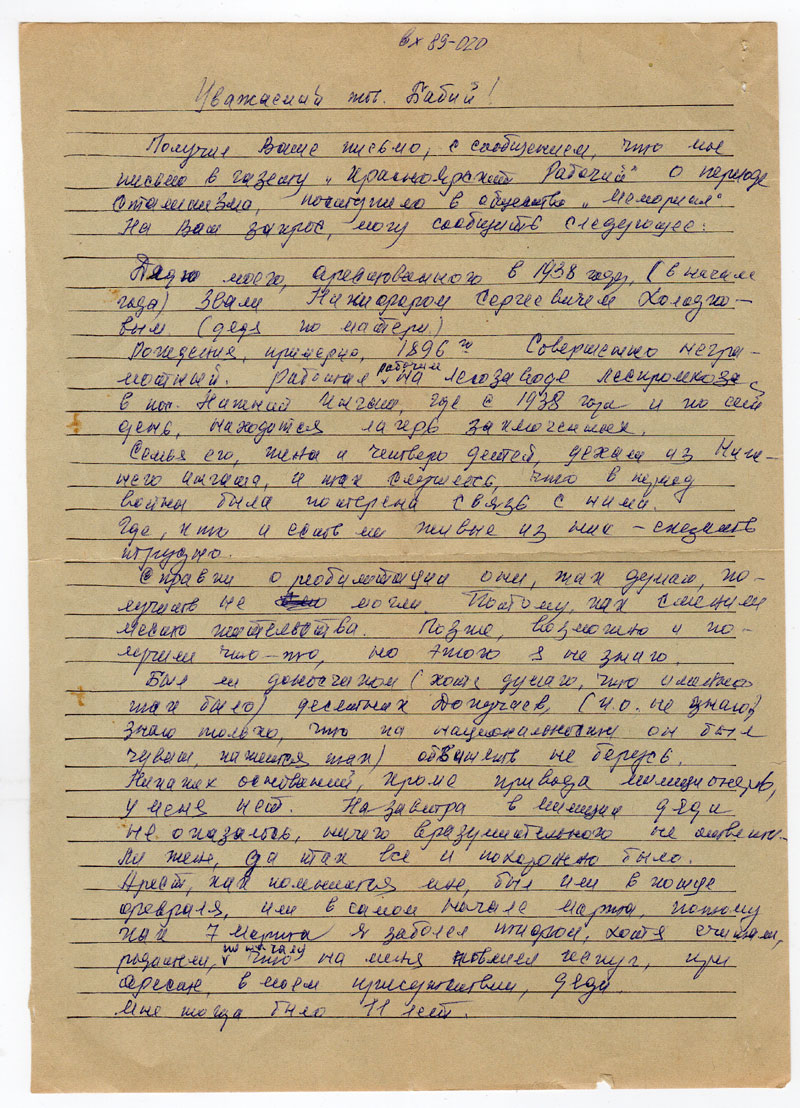 вх 89-020
Уважаемый тов. Бабий!
Получил Ваше письмо, с сообщением, что мое
письмо в газету „Красноярский Рабочий" о периоде
Сталинизма, поступило в общество „Мемориал"
На Ваш запрос, могу сообщить следующее:
Дядю моего, арестованного в 1938 году, (в начале
года) Звали Никифором Сергеевичем Холодко-
вым. (дядя по матери)
Рождения, примерно, 1896 г. Совершенно негра-
мотный. Работал рабочим на лесозаводе леспромхоза
в пос. Нижний Ингаш, где с 1938 года и по сей
день, находится лагерь заключенных.
Семья его, жена и четверо детей, уехали из Ниж-
него Ингаша, и так случилось, что в период
войны была потеряна связь с ними.
Где, кто и есть ли живые из них – сказать
трудно.
Справки о реабилитации они, так думаю, по-
лучить не могли. Потому, как сменили
место жительства. Позже, возможно и по-
лучили что-то, но этого я не знаю.
Был ли доносчиком (хотя думаю, что именно
так было) десятник Докучаев, (и.о. не знаю,
знаю только, что по национальности он был
чуваш, кажется так) обвинять не берусь.
Никаких оснований, кроме привода милиционеров,
у меня нет. Назавтра в милиции дяди
не оказалось, ничего вразумительного не ответи-
ли жене, да так все и похоронено было.
Арест, как помнится мне, был или в конце
февраля, или в самом начале марта, потому
как 7 марта я заболел тифом, хотя считали,
родители, по началу что на меня повлиял испуг, при
аресте, в моем присутствии, дяди.
Мне тогда было 11 лет.